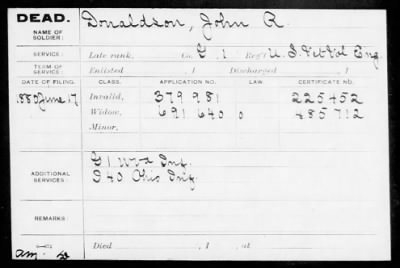 DEAD.
NAME OF SOLDIER:
Donaldson, John R.
SERVICE:
Late rank, Co. G, 1 Reg't U.S. Vet Vol Eng
TERM OF SERVICE:
Enlisted , 1 Discharged , 1
DATE OF FILING. CLASS. APPLICATION NO. LAW. CERTIFICATE NO.
1880 June 17 Invalid, 379 981 225452
Widow, 691 640 485712
Minor,
ADDITIONAL SERVICES:
G 1 Inf.
D 40 Ohio Inf.
REMARKS:
Died , 1 , at